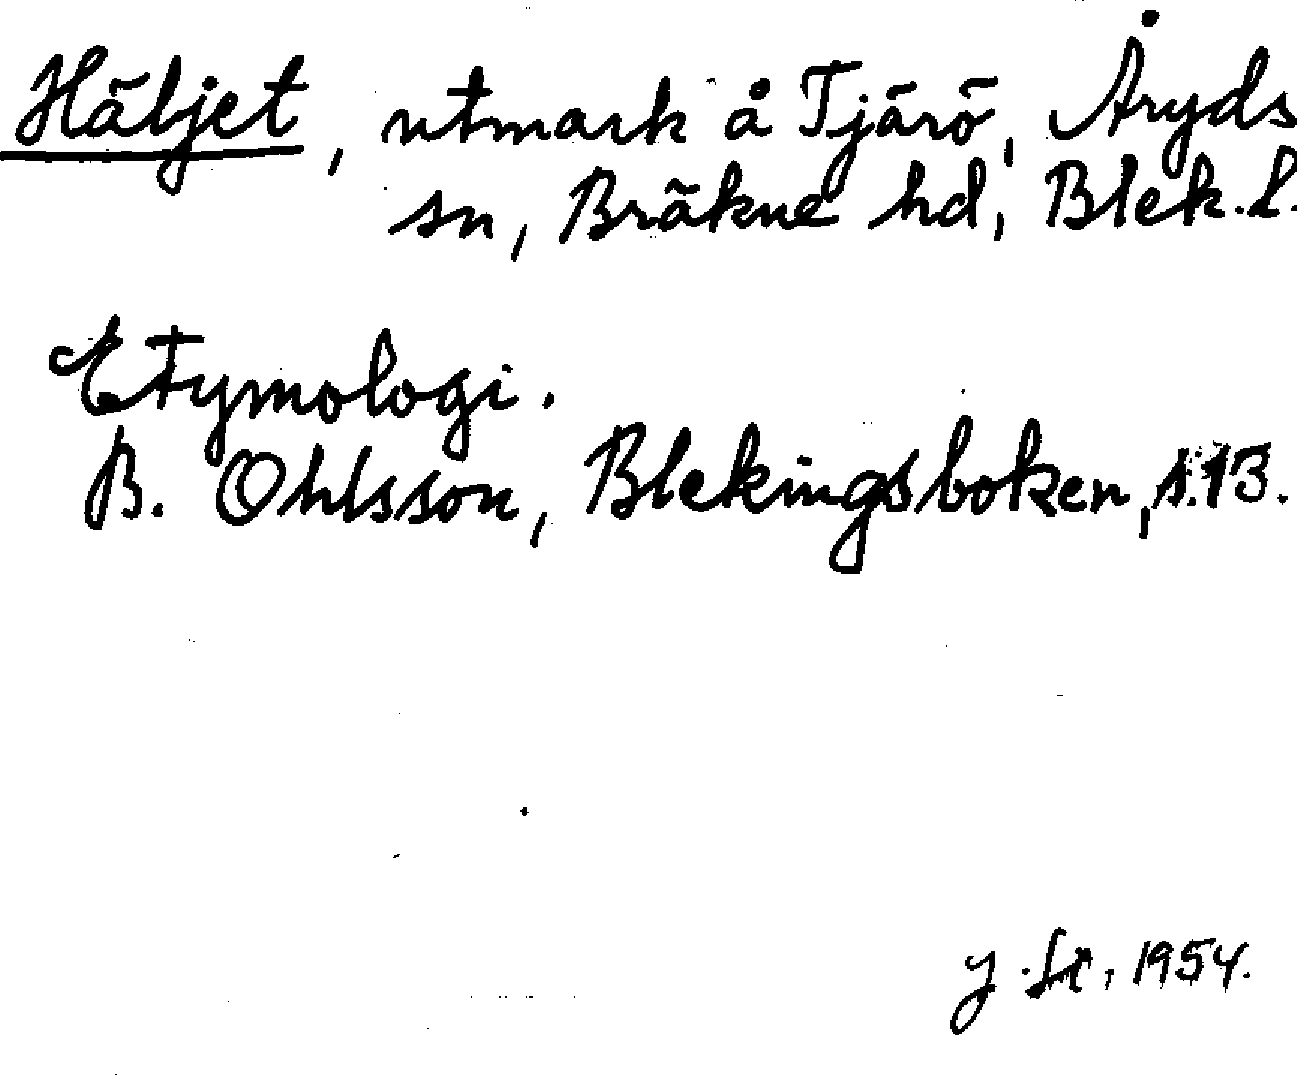 Häljet, utmark å Tjärö, Åryds
sn, Bräkne hd, Blek. l.
Etymologi.
B. Ohlsson, Blekingsboken, s. 13.
1954.